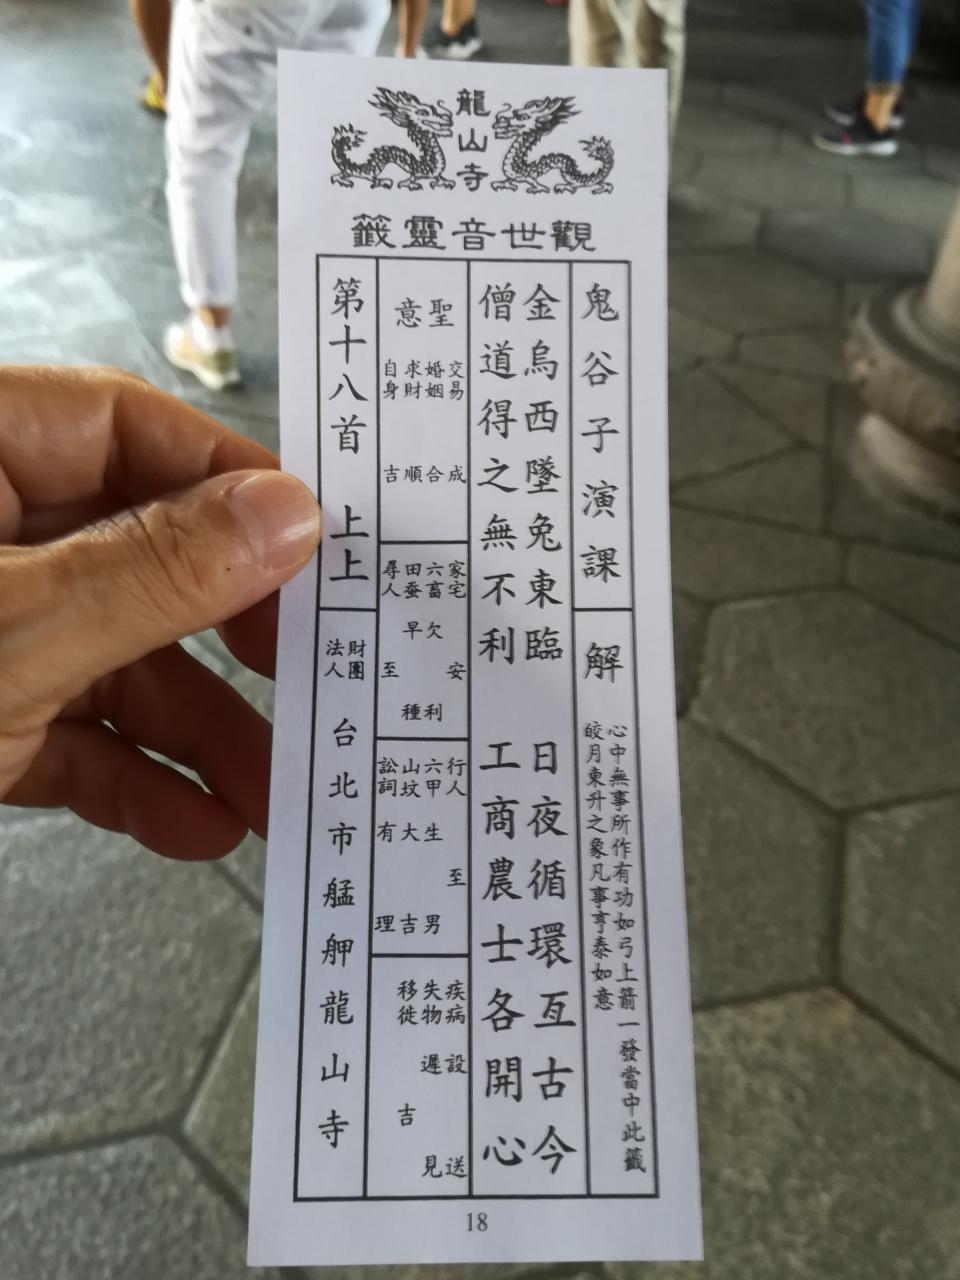 龍山寺
觀世音靈籤
鬼谷子演課
解
心中無事所作有功如弓上箭一發當中此籤
皎月東升之象凡事亨泰如意
金烏西墜兔東臨 日夜循環亙古今
僧道得之無不利 工商農士各開心
聖意
交易 成
婚姻 合
求財 順
自身 吉
家宅 安
六畜 欠利
田蚕 早種
尋人 至
行人 至
六甲 生男
山坟 大吉
訟詞 有理
疾病 設送
失物 遲見
移徙 吉
第十八首 上上
財團法人 台北市艋舺龍山寺
18